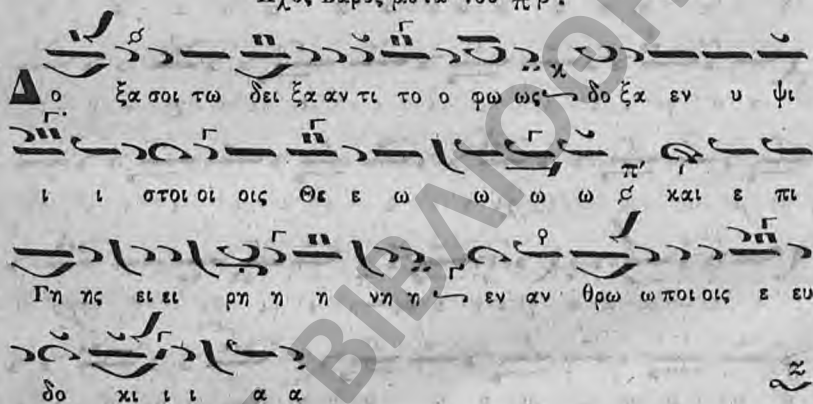 Δο ξα σοι τω δει ξα αν τι το ο φω ως δο ξα εν υ ψι
ι ι στοι οι οις Θε ε ω ω ω ω π' και ε πι
Γη ης ει ει ρη η η νη η εν αν θρω ω ποι οις ε ευ
δο κι ι ι α α